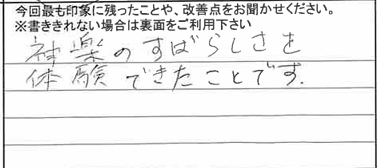 今回最も印象に残ったことや、改善点をお聞かせください。
※書ききれない場合は裏面をご利用下さい
神楽のすばらしさを
体験できたことです.